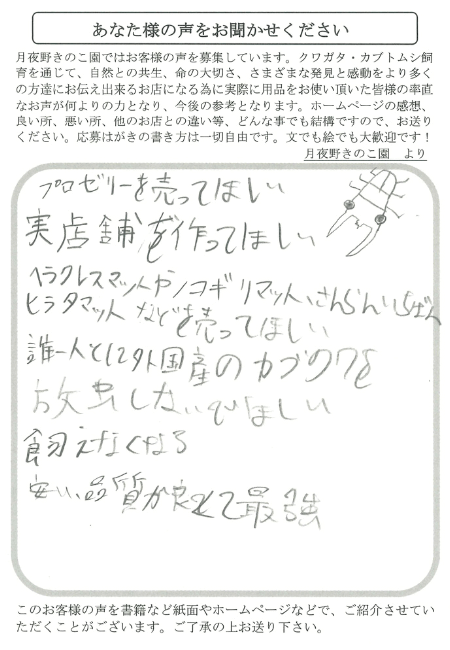 あなた様の声をお聞かせください
月夜野きのこ園ではお客様の声を募集しています。クワガタ・カブトムシ飼
育を通じて、自然との共生、命の大切さ、さまざまな発見と感動をより多く
の方達にお伝え出来るお店になる為に実際に用品をお使い頂いた皆様の率直
なお声が何よりの力となり、今後の参考となります。ホームページの感想、
良い所、悪い所、他のお店との違い等、どんな事でも結構ですので、お送り
ください。応募はがきの書き方は一切自由です。文でも絵でも大歓迎です！
月夜野きのこ園　より
プロゼリーを売ってほしい
実店舗を作ってほしい
ヘラクレスマットやノコギリマット、さんらんいちばん
ヒラタマットなどを売ってほしい
誰一人として外国産のカブクワを
放虫しないでほしい
飼えなくなる
安い、品質が良くて最強
このお客様の声を書籍など紙面やホームページなどで、ご紹介させてい
ただくことがございます。ご了承の上お送り下さい。